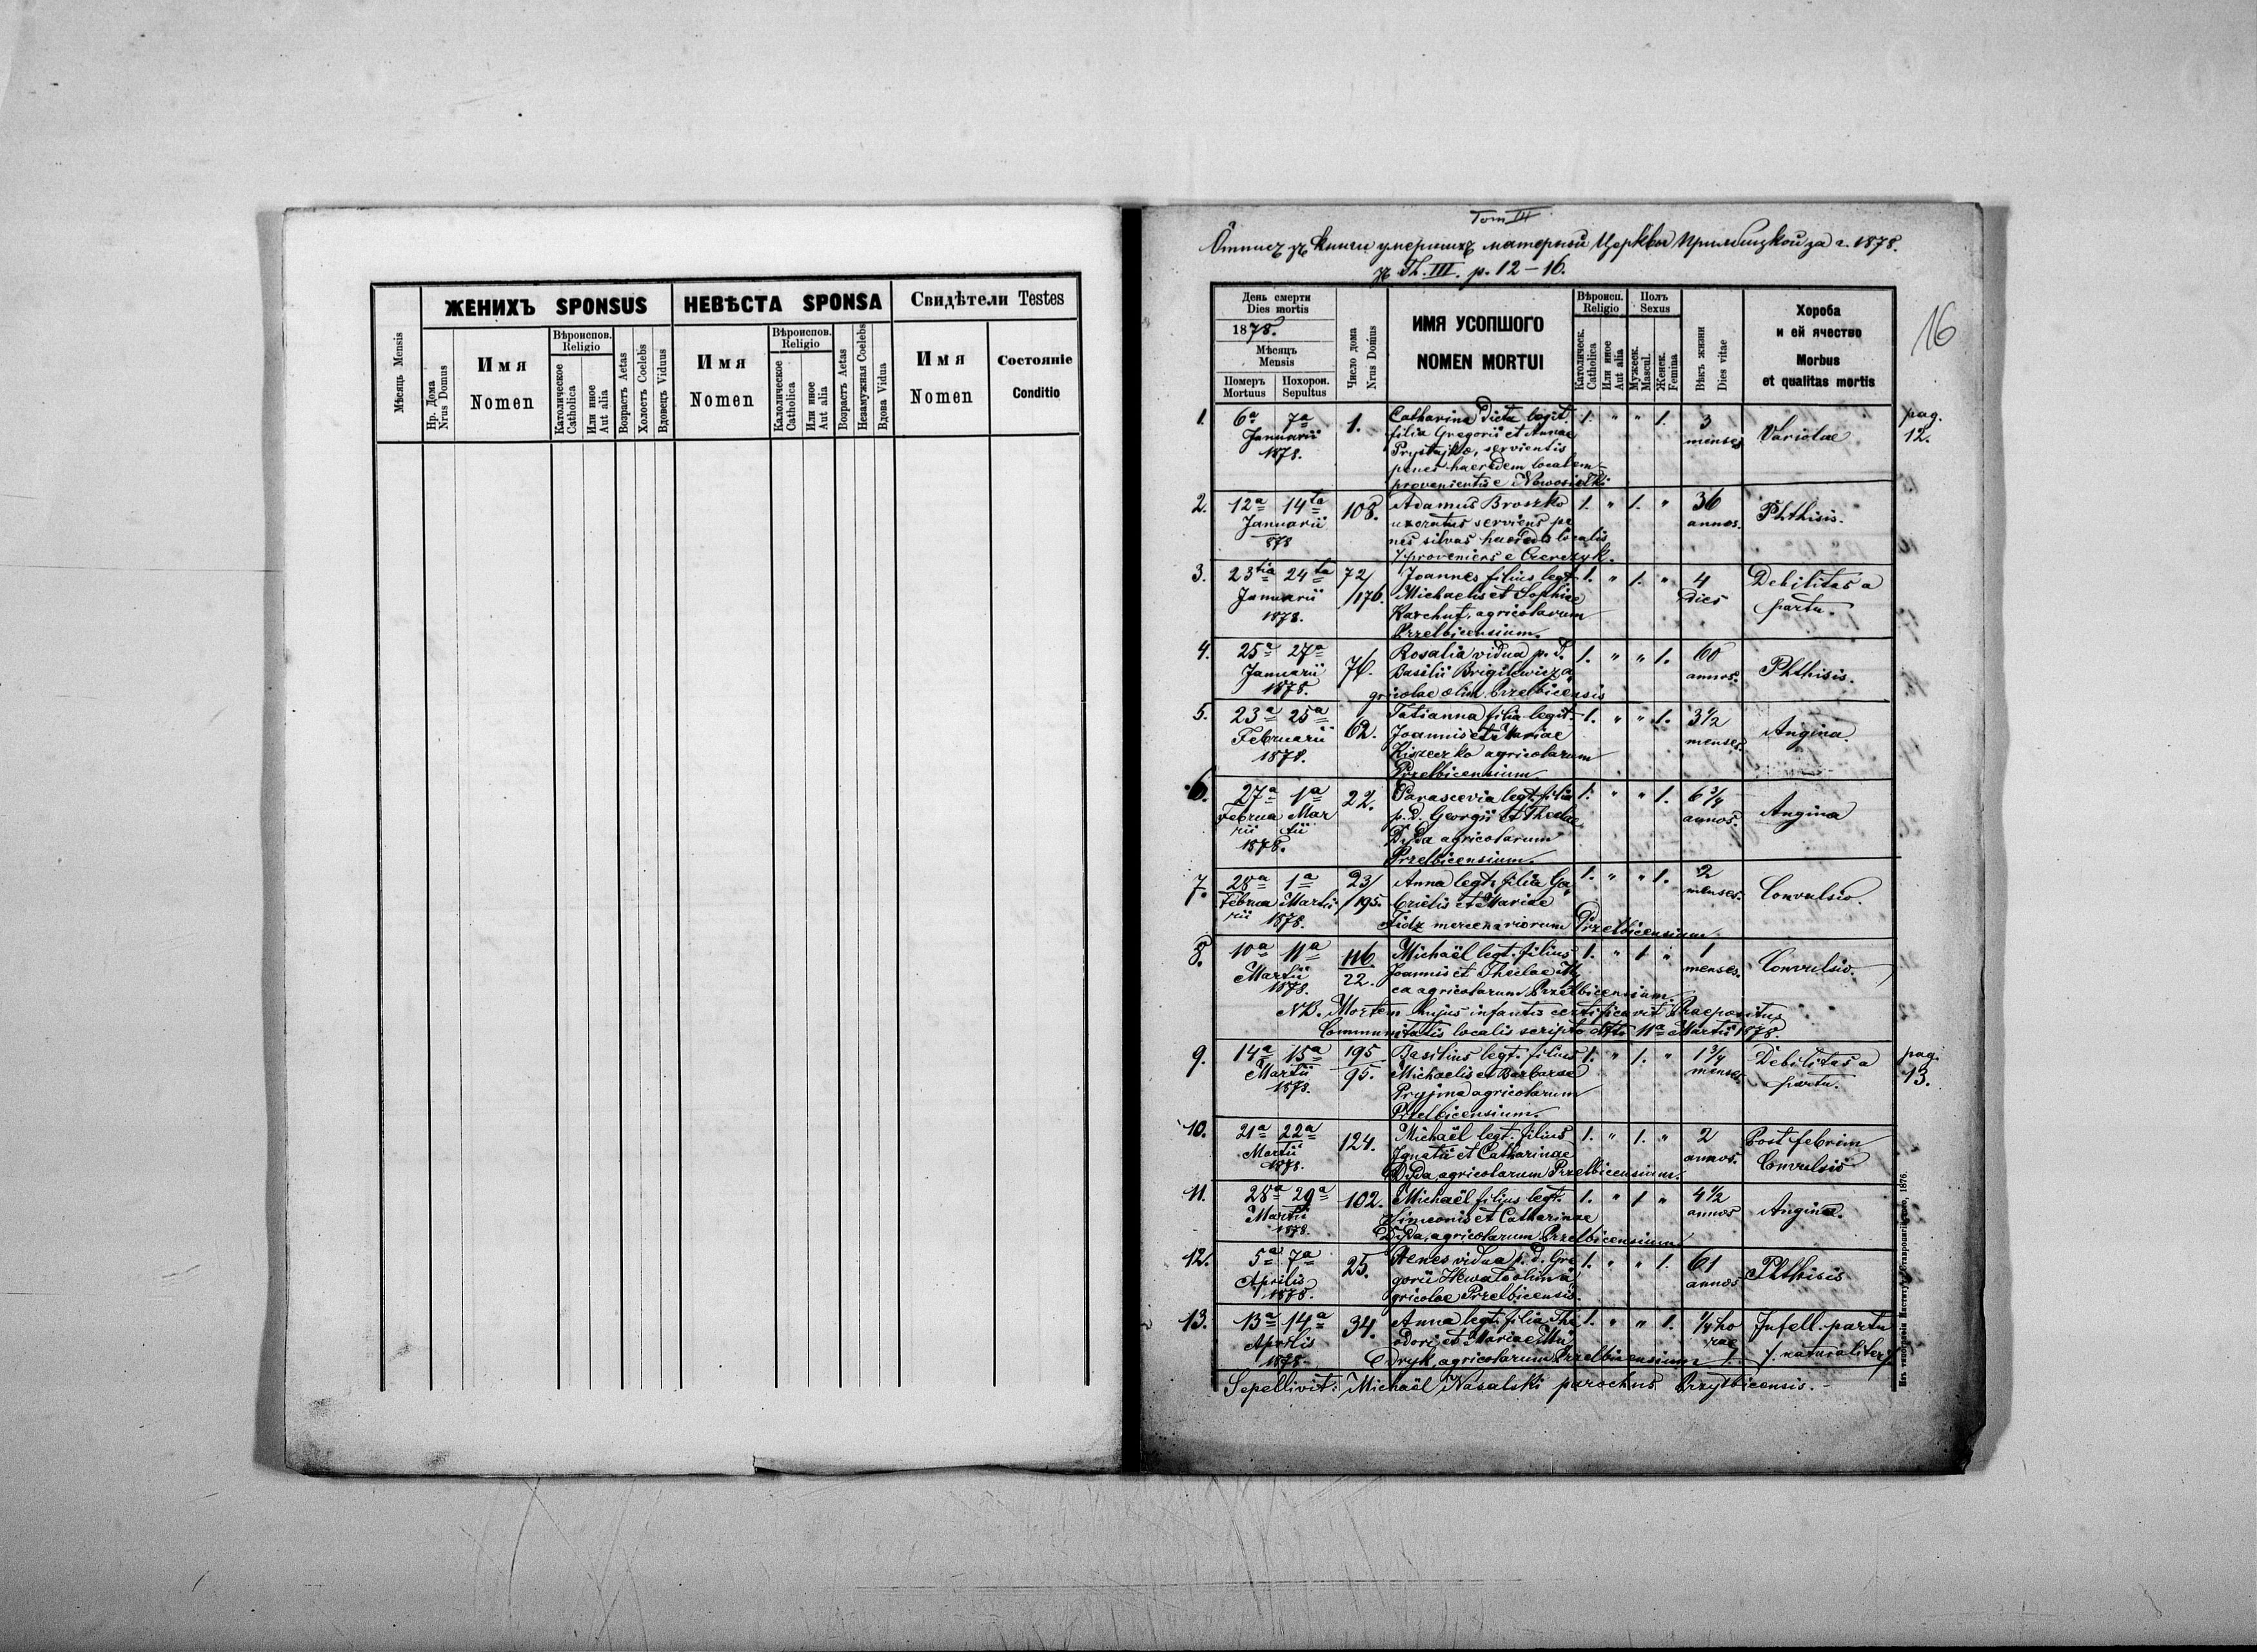 ЖЕНИХЪ SPONSUS
НЕВѢСТА SPONSA
Свидѣтели Testes
Мѣсяць Mensis
Нр. Дома
Nrus Domus
Имя
Nomen
Вѣроиспов.
Religio
Католическое
Catholica
Или иное
Aut alia
Возрастъ Aetas
Холостъ Coelebs
Вдовецъ Viduus
Имя
Nomen
Вѣроиспов.
Religio
Католическое
Catholica
Или иное
Aut alia
Возрастъ Aetas
Незамужная Coelebs
Вдова Vidua
Имя
Nomen
Состояніе
Conditio
Tom III
Отписъ зъ книги умершихъ матерной Церкви Прилбицкой за г. 1878.
зъ Th. III. p. 12–16.
16
День смерти
Dies mortis
1878.
Мѣсяцъ
Mensis
Померъ
Mortuus
Похорон.
Sepultus
Число дома
Nrus Domus
ИМЯ УСОПШОГО
NOMEN MORTUI
Вѣроисп.
Religio
Католическ.
Catholica
Или иное
Aut alia
Полъ
Sexus
Мужеск.
Mascul.
Женск.
Femina
Вѣкъ жизни
Dies vitae
Хороба
и ей ячество
Morbus
et qualitas mortis
1. 6a 7a 1. Catharina Dicta legit. 1. " " 1. 3 Variolae pag.
Januarii filia Gregorii et Annae menses 12.
1878. Prystajko, servientis
penes haeredem localem
provenientis e Nowosiełki.
2. 12a 14ta 108. Adamus Broszko 1. " 1. " 36 Phthisis.
Januarii uxoratus serviens pe annos.
878 nes silvas haeredis localis
proveniens e
3. 23tia 24ta 72/176. Joannes filius legt. 1. " 1. " 4 Debilitas a
Januarii Michaelis et Sophiae dies partu.
1878. Karchut, agricolarum
Przelbicensium.
4. 25a 27a 76. Rosalia vidua p. d. 1. " " 1. 60 Phthisis.
Januarii Basilii Brigilewicz a annos.
1878. gricolae olim Przelbicensis
5. 23a 25a 62. Tatianna filia legit. 1. " " 1. 3½ Angina.
Februarii Joannis et Mariae menses.
1878. Kiszeczko agricolarum
Przelbicensium.
6. 27a 1a 22. Parascevia legt. filia 1. " " 1. 6¾ Angina
Februa Mar p. d. Georgii et Theclae annos.
rii tii Dyda agricolarum
1878. Przelbicensium.
7. 28a 1a 23/195. Anna legt. filia Ga 1. " " 1. 2 Convulsio.
Februa Martii brielis et Mariae menses.
rii 1878. Fidz mercenariorum Przelbicensium
8. 10a 11a 116/22. Michaël legt. filius 1. " 1 " 1 Convulsio.
Martii Joannis et Theclae menses.
1878. agricolarum Przelbicensium.
NB. Mortem hujus infantis certificavit Praepositus
Communitatis localis scripto dtto 11a Martii 1878.
9. 14a 15a 195/95. Basilius legt. filius 1. " 1. " 1¾ Debilitas a pag.
Martii Michaelis et Barbarae menses partu. 13.
1878. Pryjma agricolarum
Przelbicensium.
10. 21a 22a 124. Michaël legt. filius 1. " 1. " 2 Post febrim
Martii Ignatii et Catharinae annos. Convulsio
1878. Dyda, agricolarum Przelbicensium.
11. 28a 29a 102. Michaël filius legt. 1. " 1 " 4½ Angina.
Martii Simeonis et Catharinae annos
1878. Dyda, agricolarum Przelbicensium
12. 5a 7a 25. vidua p. d. Gre 1. " " 1. 61 Phthisis
Aprilis gorii olim a annos
1878. gricolae Przelbicensis.
13. 13a 14a 34. Anna legt. filia The 1. " " 1. ¼ ho Infell. partu
Aprilis odori et Mariae rae /. naturaliter /.
1878. agricolarum Przelbicensium
Sepellivit: Michaël Nasalski parochus Przylbicensis.
Изъ типографіи Института Ставропигіяного, 1876.